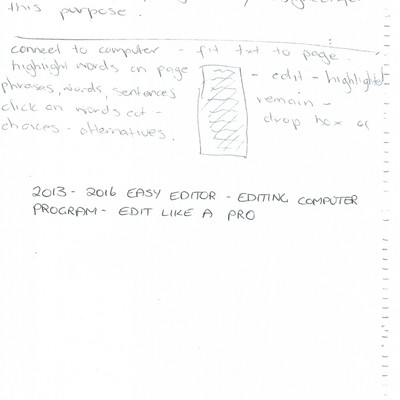 this purpose.
connect to computer - fit txt to page.
highlight words on page
phrases, words, sentences
click on words cut -
choices - alternatives.
- edit - highlighted
remain -
drop box of
2013 - 2016 EASY EDITOR - EDITING COMPUTER
PROGRAM - EDIT LIKE A PRO